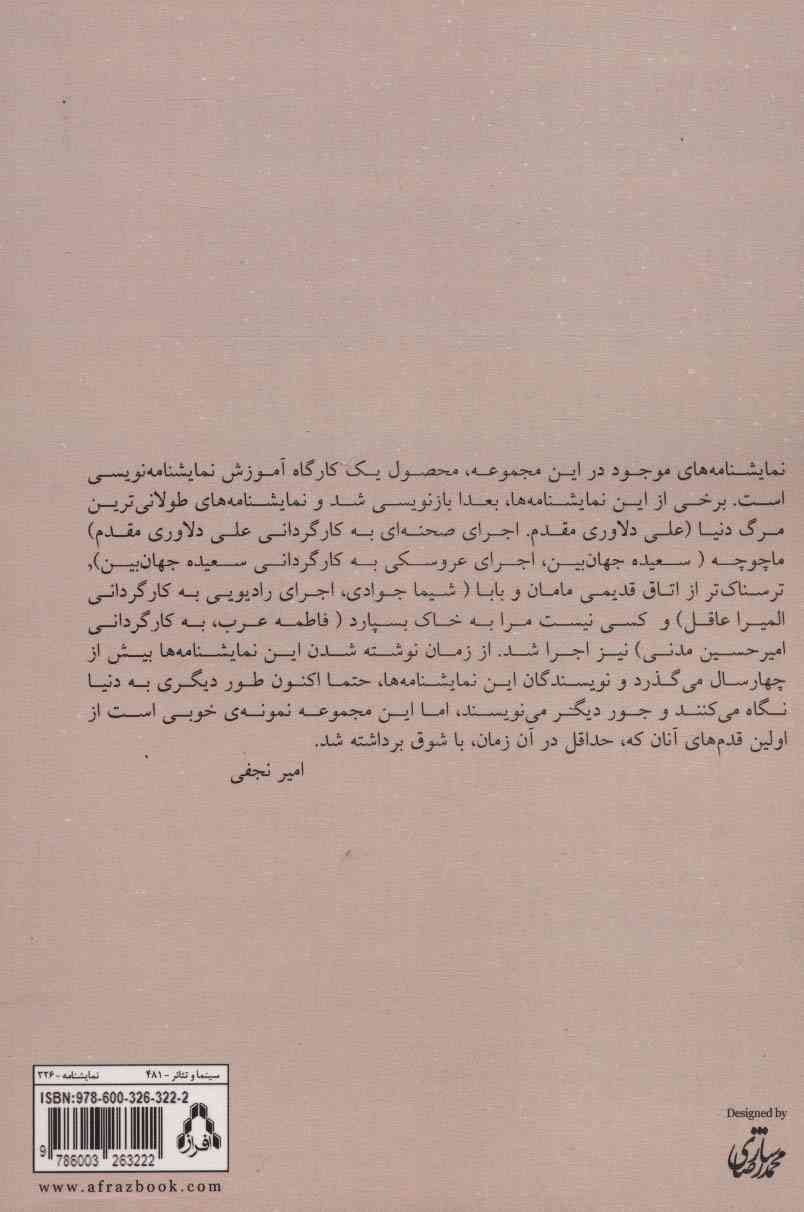 نمایشنامه‌های موجود در این مجموعه، محصول یک کارگاه آموزش نمایشنامه‌نویسی
است. برخی از این نمایشنامه‌ها، بعدا بازنویسی شد و نمایشنامه‌های طولانی‌ترین
مرگ دنیا (علی دلاوری مقدم. اجرای صحنه‌ای به کارگردانی علی دلاوری مقدم)
ماچوچه ( سعیده جهان‌بین، اجرای عروسکی به کارگردانی سعیده جهان‌بین),
ترسناک‌تر از اتاق قدیمی مامان و بابا ( شیما جوادی، اجرای رادیویی به کارگردانی
المیرا عاقل) و کسی نیست مرا به خاک بسپارد ( فاطمه عرب، به کارگردانی
امیرحسین مدنی) نیز اجرا شد. از زمان نوشته شدن این نمایشنامه‌ها بیش از
چهارسال می‌گذرد و نویسندگان این نمایشنامه‌ها، حتما اکنون طور دیگری به دنیا
نگاه می‌کنند و جور دیگر می‌نویسند، اما این مجموعه نمونه‌ی خوبی است از
اولین قدم‌های آنان که، حداقل در آن زمان، با شوق برداشته شد.
امیر نجفی
سینما و تئاتر - ۴۸۱ نمایشنامه - ۲۲۶
ISBN:978-600-326-322-2
افراز
9 786003 263222
www.afrazbook.com
Designed by